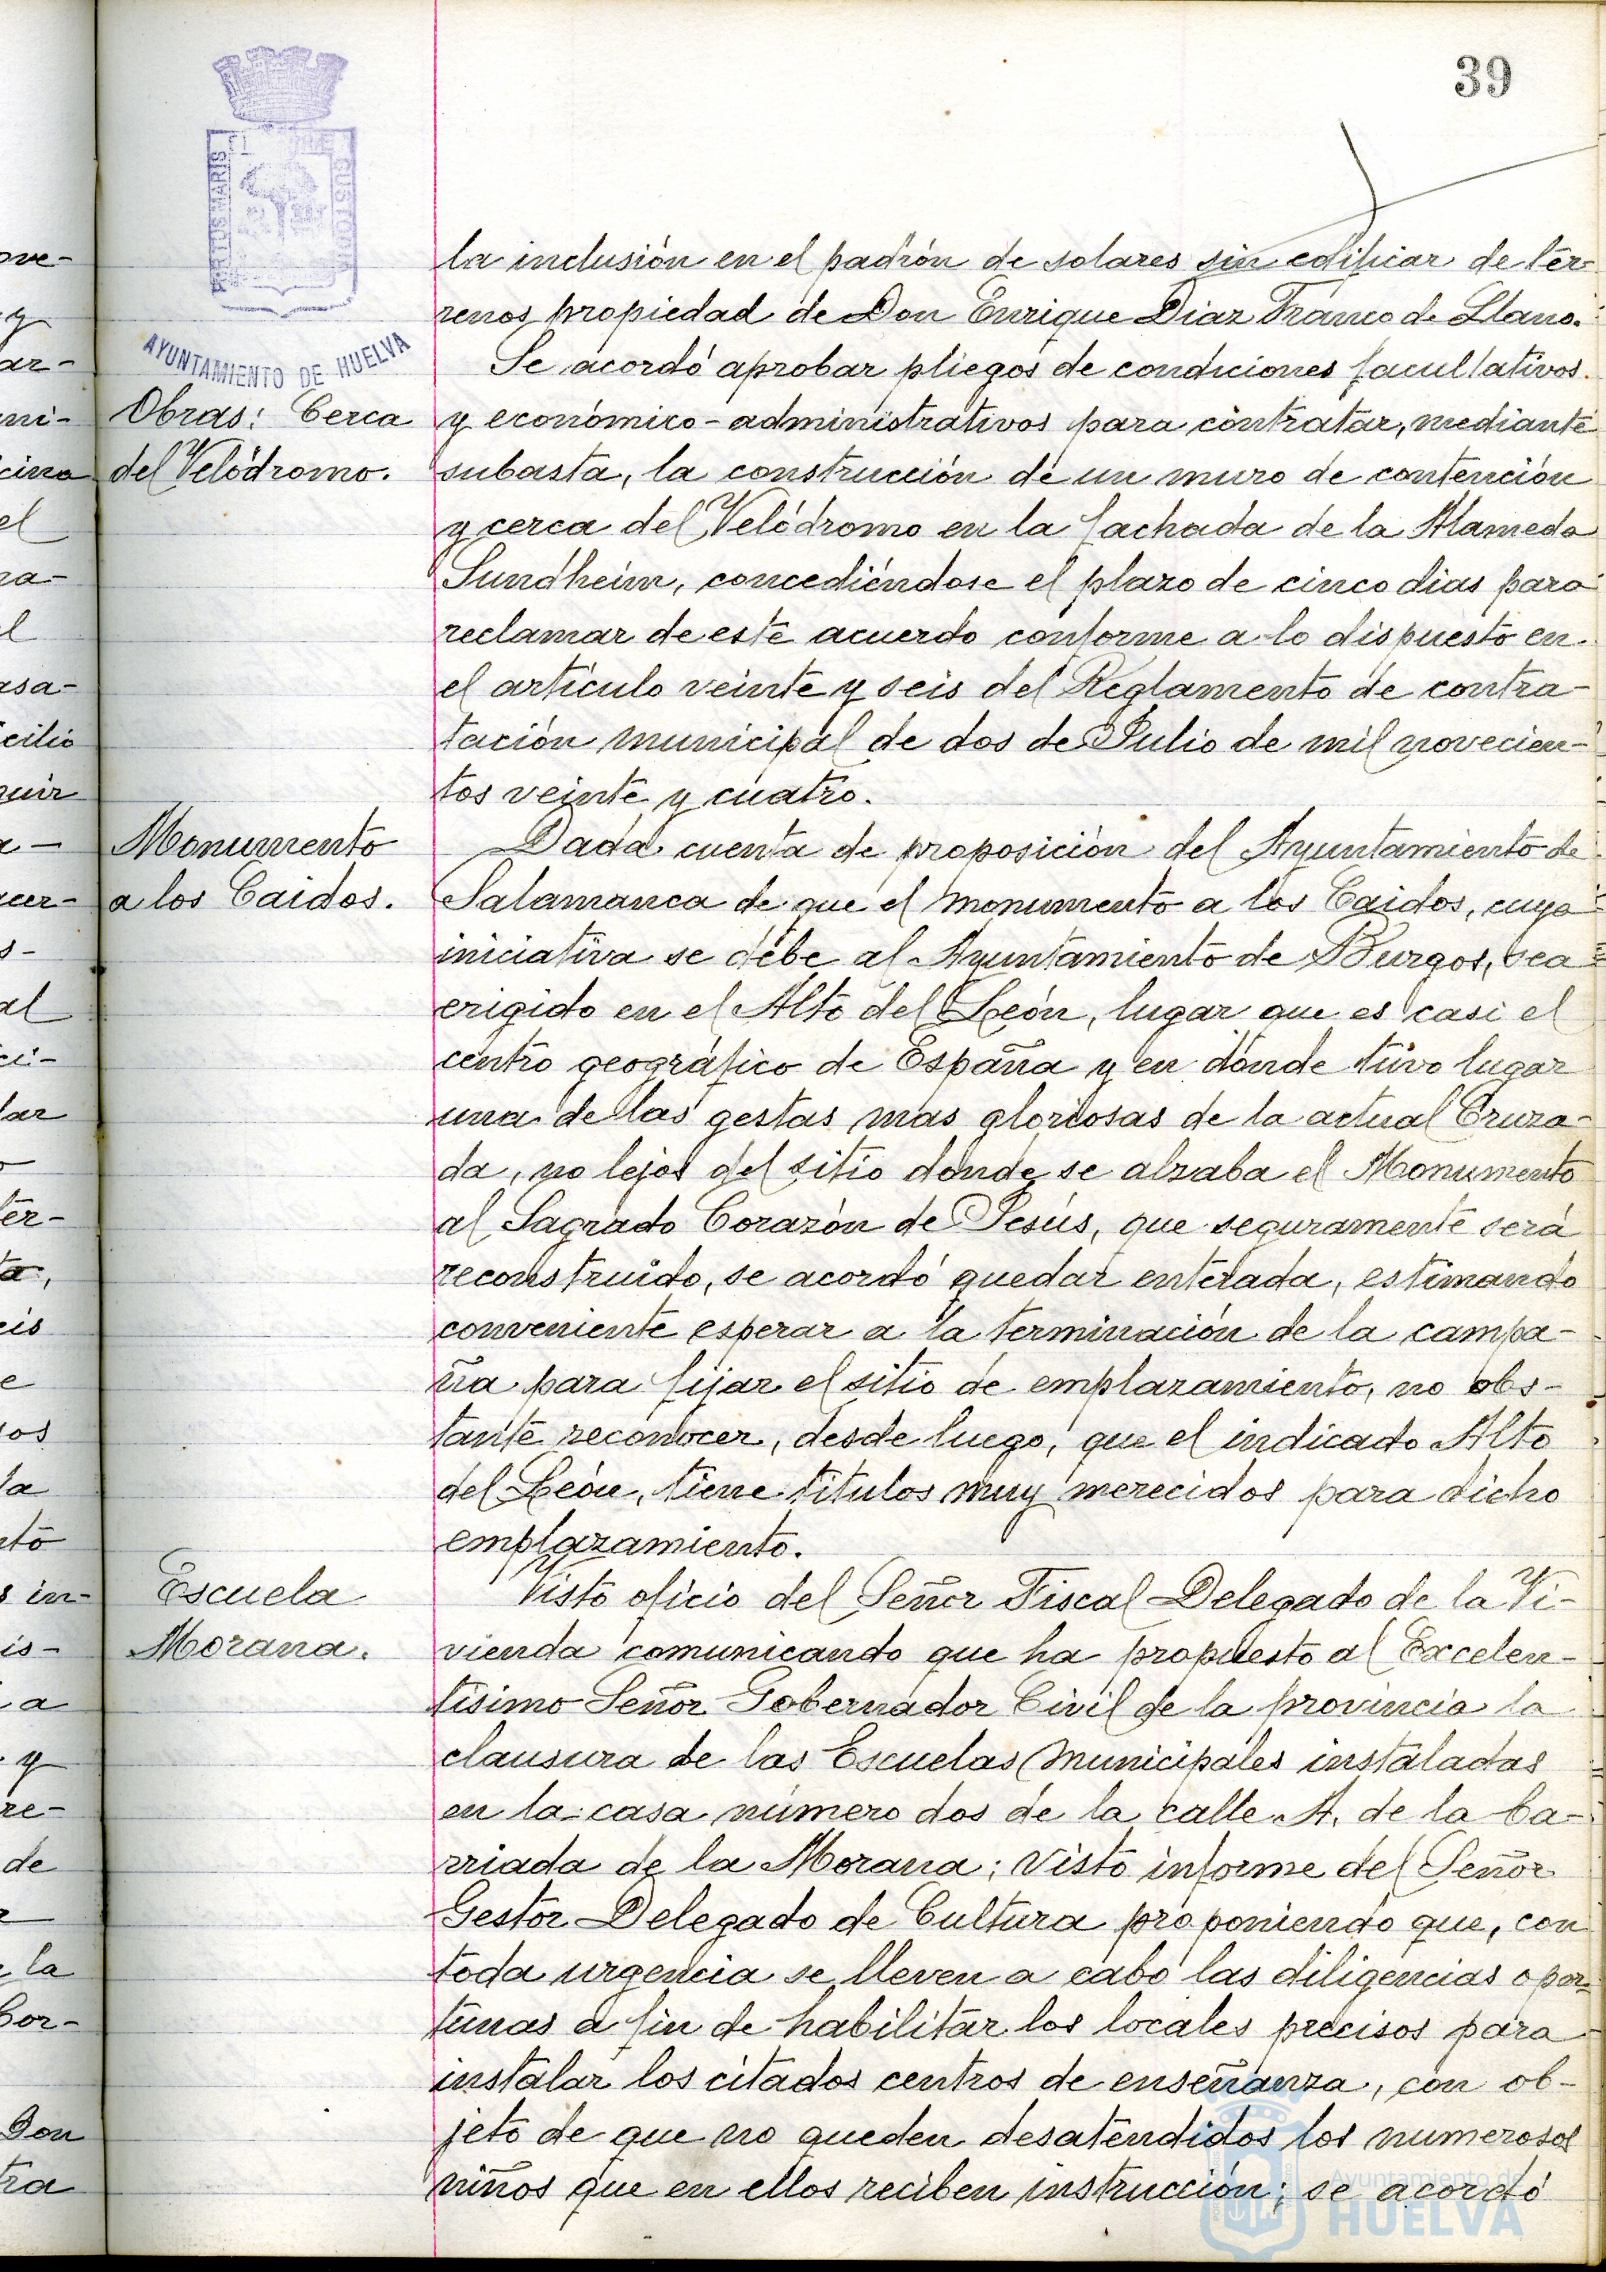 39
PORTUS MARIS
CUSTODIA
AYUNTAMIENTO DE HUELVA
la inclusión en el padrón de solares sin edificar de ter-
renos propiedad de Don Enrique Diaz Franco de Llano.
Se acordó aprobar pliegos de condiciones facultativos
Obras: Cerca
del Velódromo.
y económico-administrativos para contratar, mediante
subasta, la construcción de un muro de contención
y cerca del Velódromo en la fachada de la Alameda
Sundheim, concediéndose el plazo de cinco dias para
reclamar de este acuerdo conforme a lo dispuesto en
el artículo veinte y seis del Reglamento de contra-
tación municipal de dos de Julio de mil novecien-
tos veinte y cuatro.
Monumento
a los Caidos.
Dada cuenta de proposición del Ayuntamiento de
Salamanca de que el monumento a los Caidos, cuya
iniciativa se debe al Ayuntamiento de Burgos, sea
erigido en el Alto del León, lugar que es casi el
centro geográfico de España y en dónde tuvo lugar
una de las gestas mas gloriosas de la actual Cruza-
da, no lejos del sitio donde se alzaba el Monumento
al Sagrado Corazón de Jesús, que seguramente será
reconstruido, se acordó quedar enterada, estimando
conveniente esperar a la terminación de la campa-
ña para fijar el sitio de emplazamiento, no obs-
tante reconocer, desde luego, que el indicado Alto
del León, tiene titulos muy merecidos para dicho
emplazamiento.
Escuela
Morana.
Visto oficio del Señor Fiscal Delegado de la Vi-
vienda comunicando que ha propuesto al Excelen-
tisimo Señor Gobernador Civil de la provincia la
clausura de las Escuelas Municipales instaladas
en la casa número dos de la calle A. de la ba-
rriada de la Morana; visto informe del Señor
Gestor Delegado de Cultura proponiendo que, con
toda urgencia se lleven a cabo las diligencias opor-
tunas a fin de habilitar los locales precisos para
instalar los citados centros de enseñanza, con ob-
jeto de que no queden desatendidos los numerosos
niños que en ellos reciben instrucción; se acordó
Ayuntamiento de
HUELVA